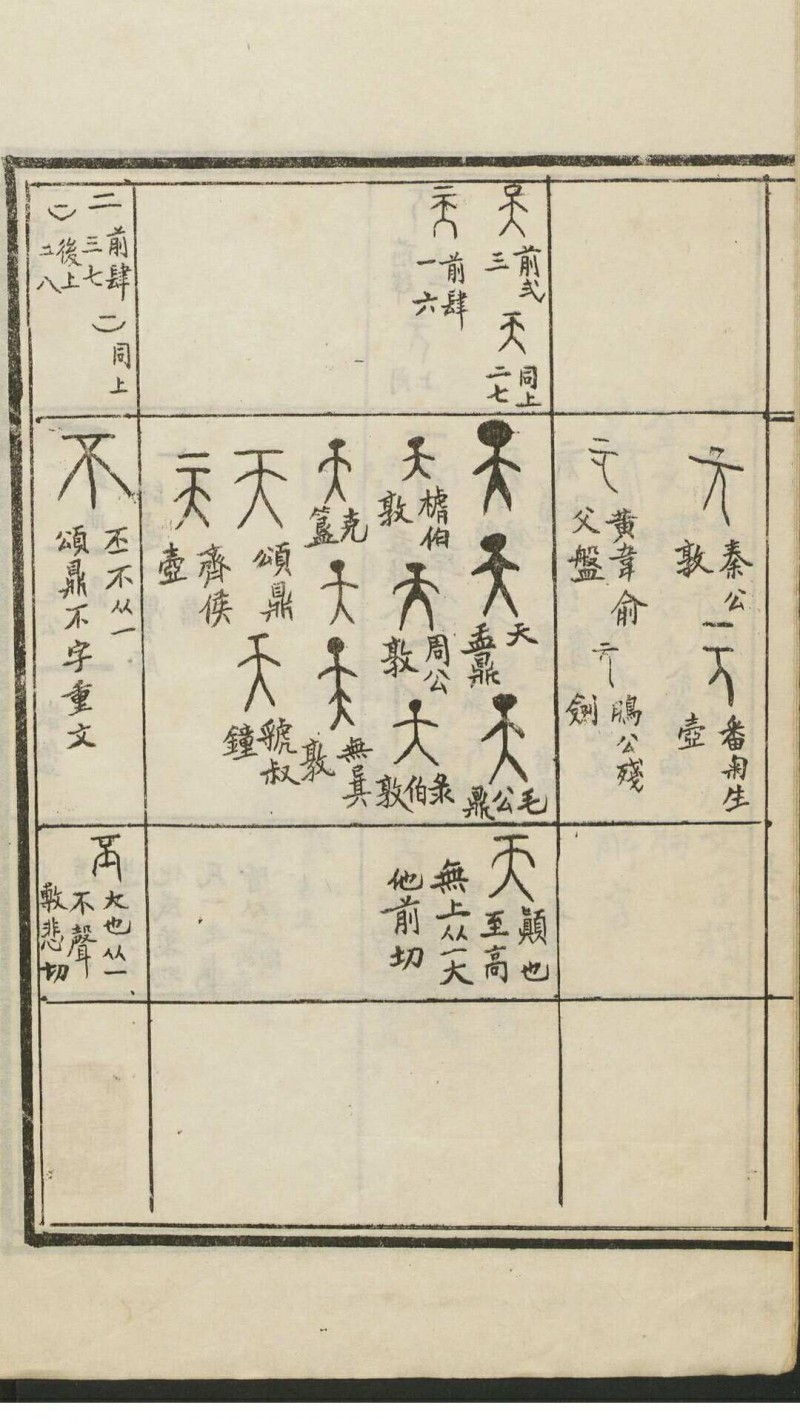 前弍
三
同上
二七
前肆
一六
二
前肆
三七
同上
後上
秦公
敦
番匊生
壺
黃韋俞
父盤
公殘
劍
天
盂鼎
毛公鼎
伯
敦
周公
敦
彔伯敦
克
簋
無㠱
敦
頌鼎
虢叔
鐘
齊侯
壺
不
丕不从一
頌鼎不字重文
天
顚也
至高
無上从一大
他前切
丕
大也从一
不聲
敷悲切